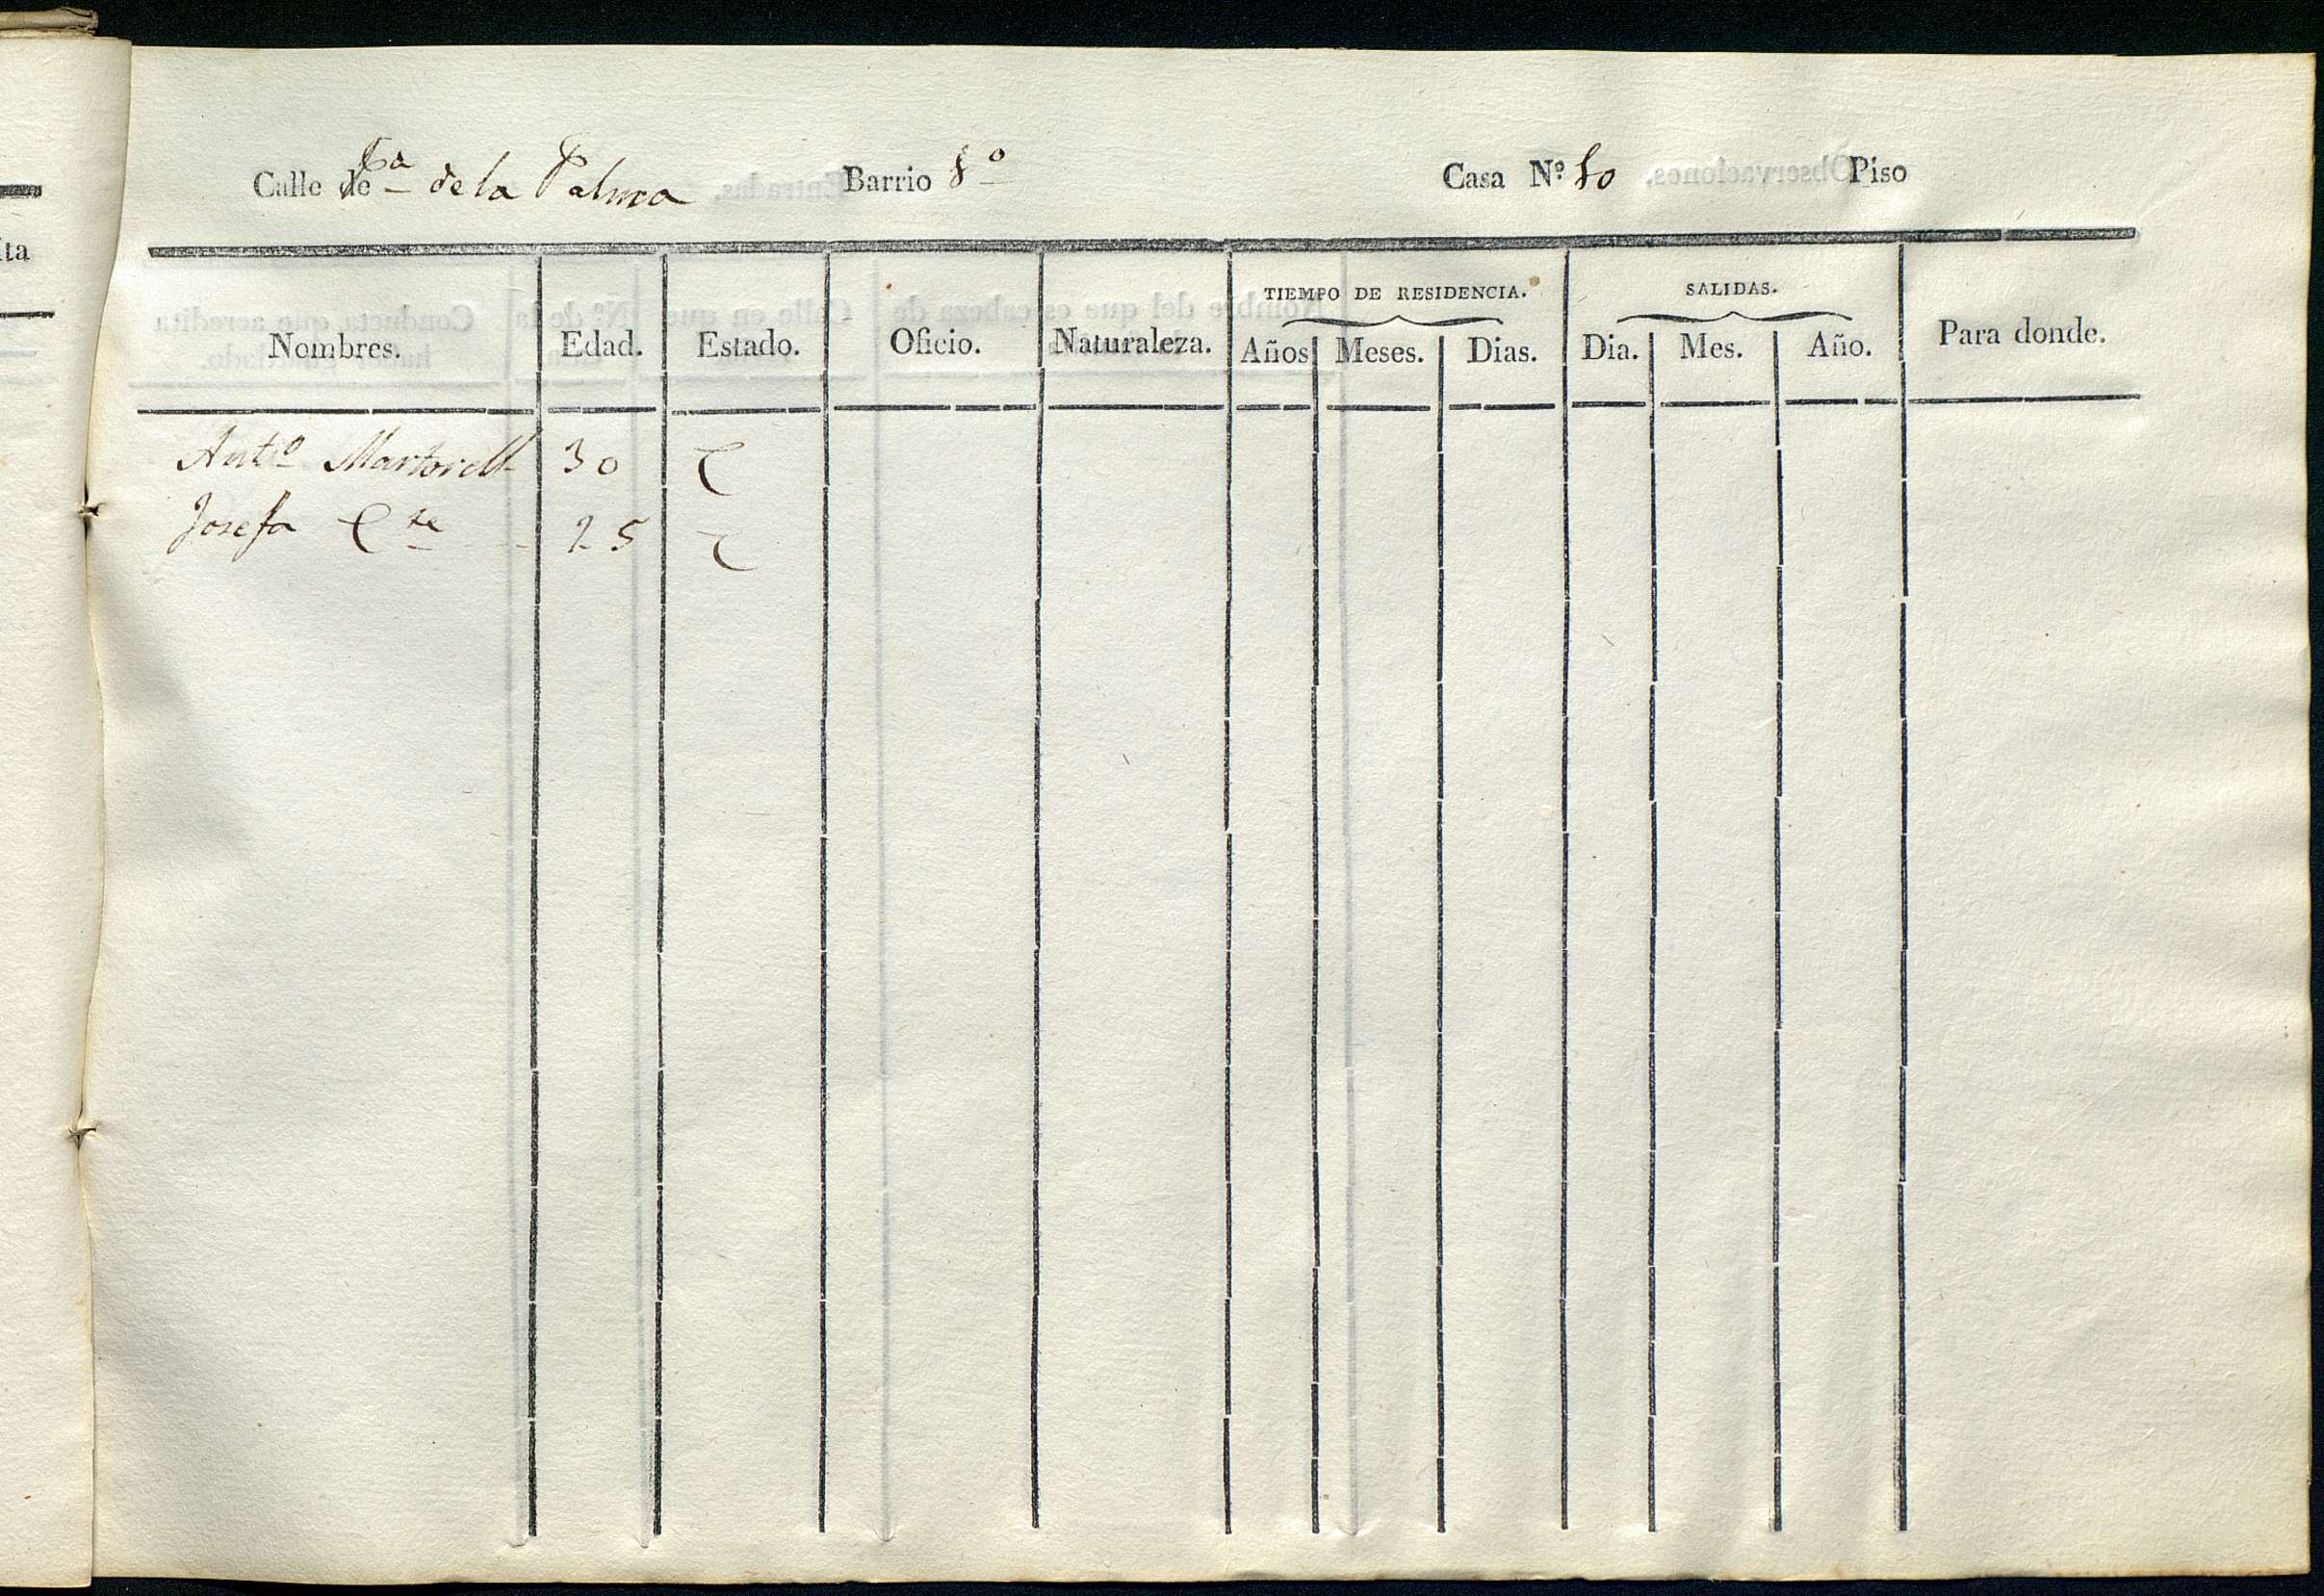 Calle de Pª de la Palma Barrio 8º Casa Nº 50 Piso
Nombres. Edad. Estado. Oficio. Naturaleza. TIEMPO DE RESIDENCIA. Años Meses. Dias. SALIDAS. Dia. Mes. Año. Para donde.
Antº Martorell 30 C
Josefa Cte 25 C